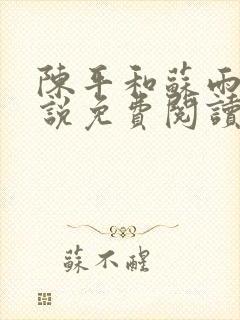 陳平和蘇雨
說免費閱讀
蘇不醒